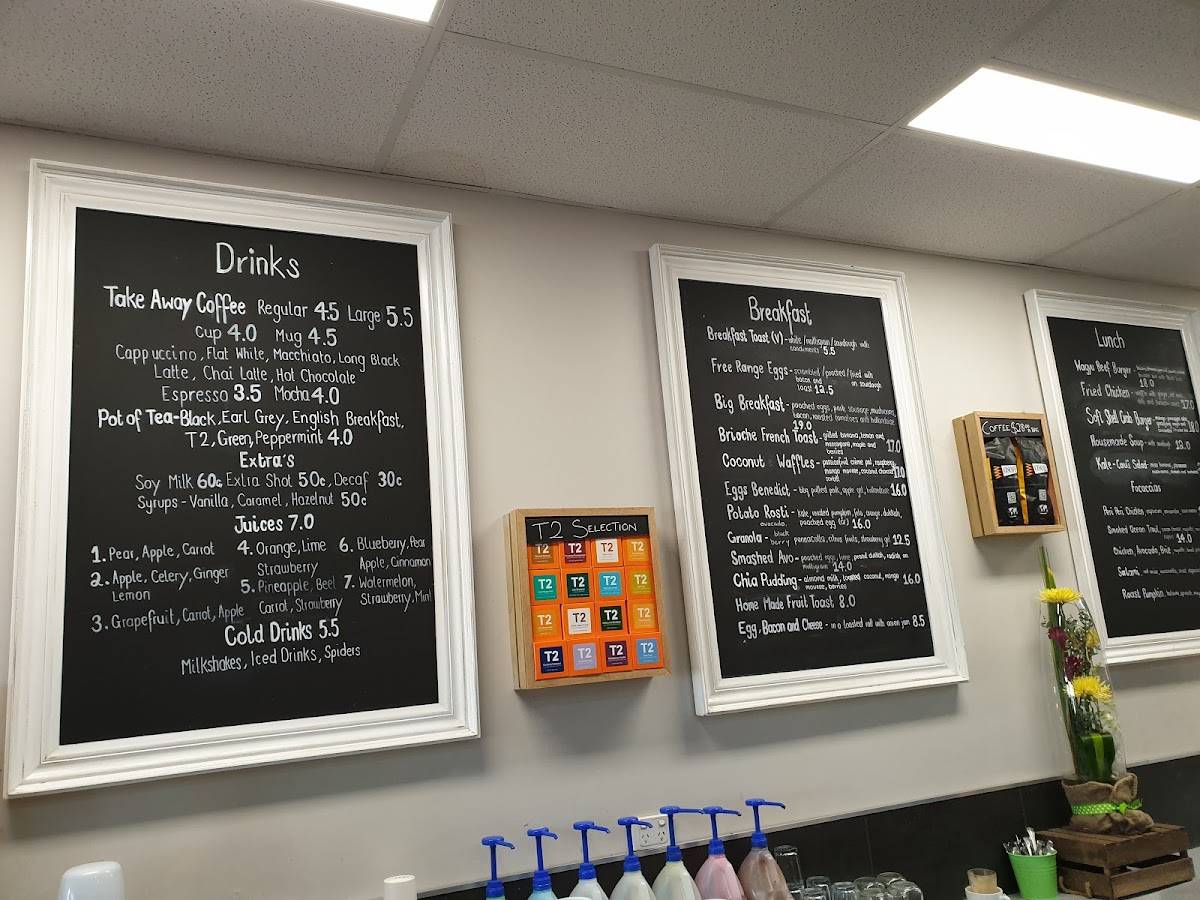 Drinks
Take Away Coffee Regular 4.5 Large 5.5
Cup 4.0 Mug 4.5
Cappuccino, Flat White, Macchiato, Long Black
Latte, Chai Latte, Hot Chocolate
Espresso 3.5 Mocha 4.0
Pot of Tea-Black, Earl Grey, English Breakfast,
T2, Green, Peppermint 4.0
Extra's
Soy Milk 60c Extra Shot 50c, Decaf 30c
Syrups - Vanilla, Caramel, Hazelnut 50c
Juices 7.0
1. Pear, Apple, Carrot
2. Apple, Celery, Ginger
Lemon
3. Grapefruit, Carrot, Apple
4. Orange, Lime
Strawberry
5. Pineapple, Beet
Carrot, Strawberry
6. Blueberry, Pear
Apple, Cinnamon
7. Watermelon,
Strawberry, Mint
Cold Drinks 5.5
Milkshakes, Iced Drinks, Spiders
T2 SELECTION
T2 T2 T2 T2
T2 T2 T2 T2
T2 T2 T2 T2
T2 T2 T2 T2
Breakfast
Breakfast Toast (V) - white / multigrain / sourdough with
condiments 5.5
Free Range Eggs - scrambled / poached / fried with
bacon and on sourdough
toast 12.5
Big Breakfast - poached eggs, pork sausage, mushrooms,
bacon, roasted tomatoes with hollandaise
19.0
Brioche French Toast - grilled banana, lemon and
mascarpone, maple and 17.0
berries
Coconut Waffles - passionfruit crème pat, raspberry,
mango mousse, coconut
Eggs Benedict - bbq pulled pork, apple gel, hollandaise 16.0
Potato Rosti - kale, smoked pumpkin, feta, dukkah,
avocado, poached egg 16.0
Granola - black
berry pannacotta, citrus, fruits, strawberry gel 12.5
Smashed Avo - poached egg, peanut dukkah, radish, on
multigrain 14.0
Chia Pudding - almond milk, toasted coconut, mango 16.0
mousse, berries
Home Made Fruit Toast 8.0
Egg, Bacon and Cheese - on a toasted roll with onion jam 8.5
COFFEE $28
Lunch
Wagyu Beef Burger
18.0
Fried Chicken - waffle with 17.0
Soft Shell Crab Burger
Housemade Soup 13.0
Kale - Cauli Salad
Focaccias
Peri Peri Chicken
Smoked Ocean Trout
14.0
Chicken, Avocado, Brie
Salami
Roast Pumpkin